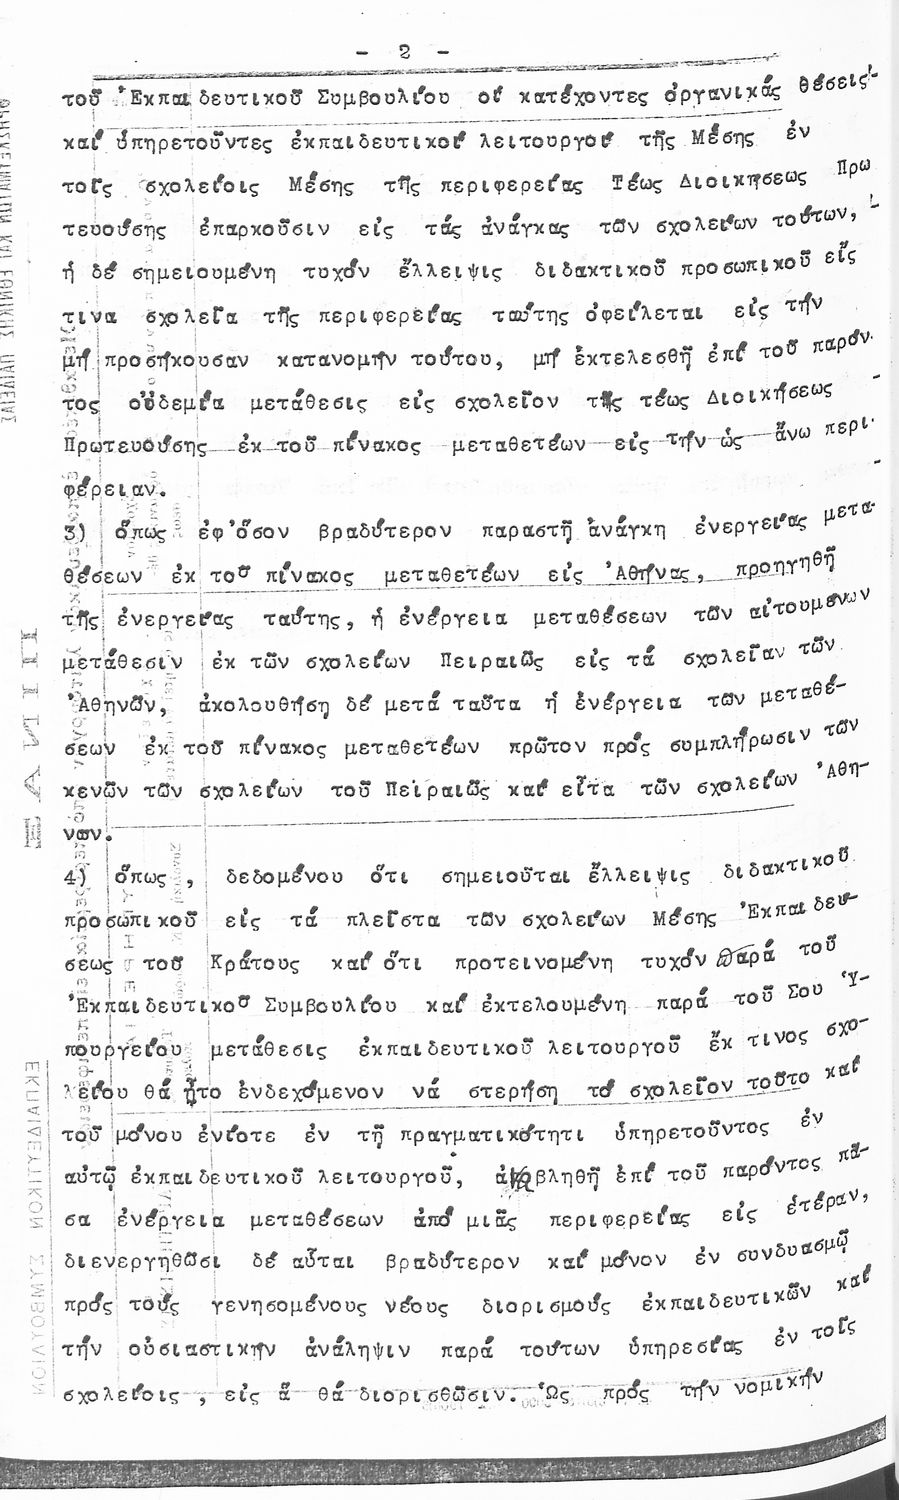 - 2 -
τοῦ Ἐκπαιδευτικοῦ Συμβουλίου οἱ κατέχοντες ὀργανικάς θέσεις
καί ὑπηρετοῦντες ἐκπαιδευτικοί λειτουργοί τῆς Μέσης ἐν
τοῖς σχολείοις Μέσης τῆς περιφερείας Τέως Διοικήσεως Πρω
τευούσης ἐπαρκοῦσιν εἰς τάς ἀνάγκας τῶν σχολείων τούτων,
ἡ δέ σημειουμένη τυχόν ἔλλειψις διδακτικοῦ προσωπικοῦ εἴς
τινα σχολεῖα τῆς περιφερείας ταύτης ὀφείλεται εἰς τήν
μή προσήκουσαν κατανομήν τούτου, μή ἐκτελεσθῇ ἐπί τοῦ παρόν-
τος οὐδεμία μετάθεσις εἰς σχολεῖον τῆς τέως Διοικήσεως
Πρωτευούσης ἐκ τοῦ πίνακος μεταθετέων εἰς τήν ὡς ἄνω περι-
φέρειαν.
3) ὅπως ἐφ'ὅσον βραδύτερον παραστῇ ἀνάγκη ἐνεργείας μετα-
θέσεων ἐκ τοῦ πίνακος μεταθετέων εἰς Ἀθήνας, προηγηθῇ
τῆς ἐνεργείας ταύτης, ἡ ἐνέργεια μεταθέσεων τῶν αἰτουμένων
μετάθεσιν ἐκ τῶν σχολείων Πειραιῶς εἰς τά σχολεῖαν τῶν
Ἀθηνῶν, ἀκολουθήσῃ δέ μετά ταῦτα ἡ ἐνέργεια τῶν μεταθέ-
σεων ἐκ τοῦ πίνακος μεταθετέων πρῶτον πρός συμπλήρωσιν τῶν
κενῶν τῶν σχολείων τοῦ Πειραιῶς καί εἶτα τῶν σχολείων Ἀθη-
νων.
4) ὅπως , δεδομένου ὅτι σημειοῦται ἔλλειψις διδακτικοῦ
προσωπικοῦ εἰς τά πλεῖστα τῶν σχολείων Μέσης Ἐκπαιδεύ-
σεως τοῦ Κράτους καί ὅτι προτεινομένη τυχόν παρά τοῦ
Ἐκπαιδευτικοῦ Συμβουλίου καί ἐκτελουμένη παρά τοῦ Σου Ὑ-
πουργείου μετάθεσις ἐκπαιδευτικοῦ λειτουργοῦ ἔκ τινος σχο-
λείου θά ἦτο ἐνδεχόμενον νά στερήσῃ τό σχολεῖον τοῦτο καί
τοῦ μόνου ἐνίοτε ἐν τῇ πραγματικότητι ὑπηρετοῦντος ἐν
αὐτῷ ἐκπαιδευτικοῦ λειτουργοῦ, ἀναβληθῇ ἐπί τοῦ παρόντος πᾶ-
σα ἐνέργεια μεταθέσεων ἀπό μιᾶς περιφερείας εἰς ἑτέραν,
διενεργηθῶσι δέ αὗται βραδύτερον καί μόνον ἐν συνδυασμῷ
πρός τούς γενησομένους νέους διορισμούς ἐκπαιδευτικῶν καί
τήν οὐσιαστικήν ἀνάληψιν παρά τούτων ὑπηρεσίας ἐν τοῖς
σχολείοις , εἰς ἅ θά διορισθῶσιν. Ὡς πρός τήν νομικήν